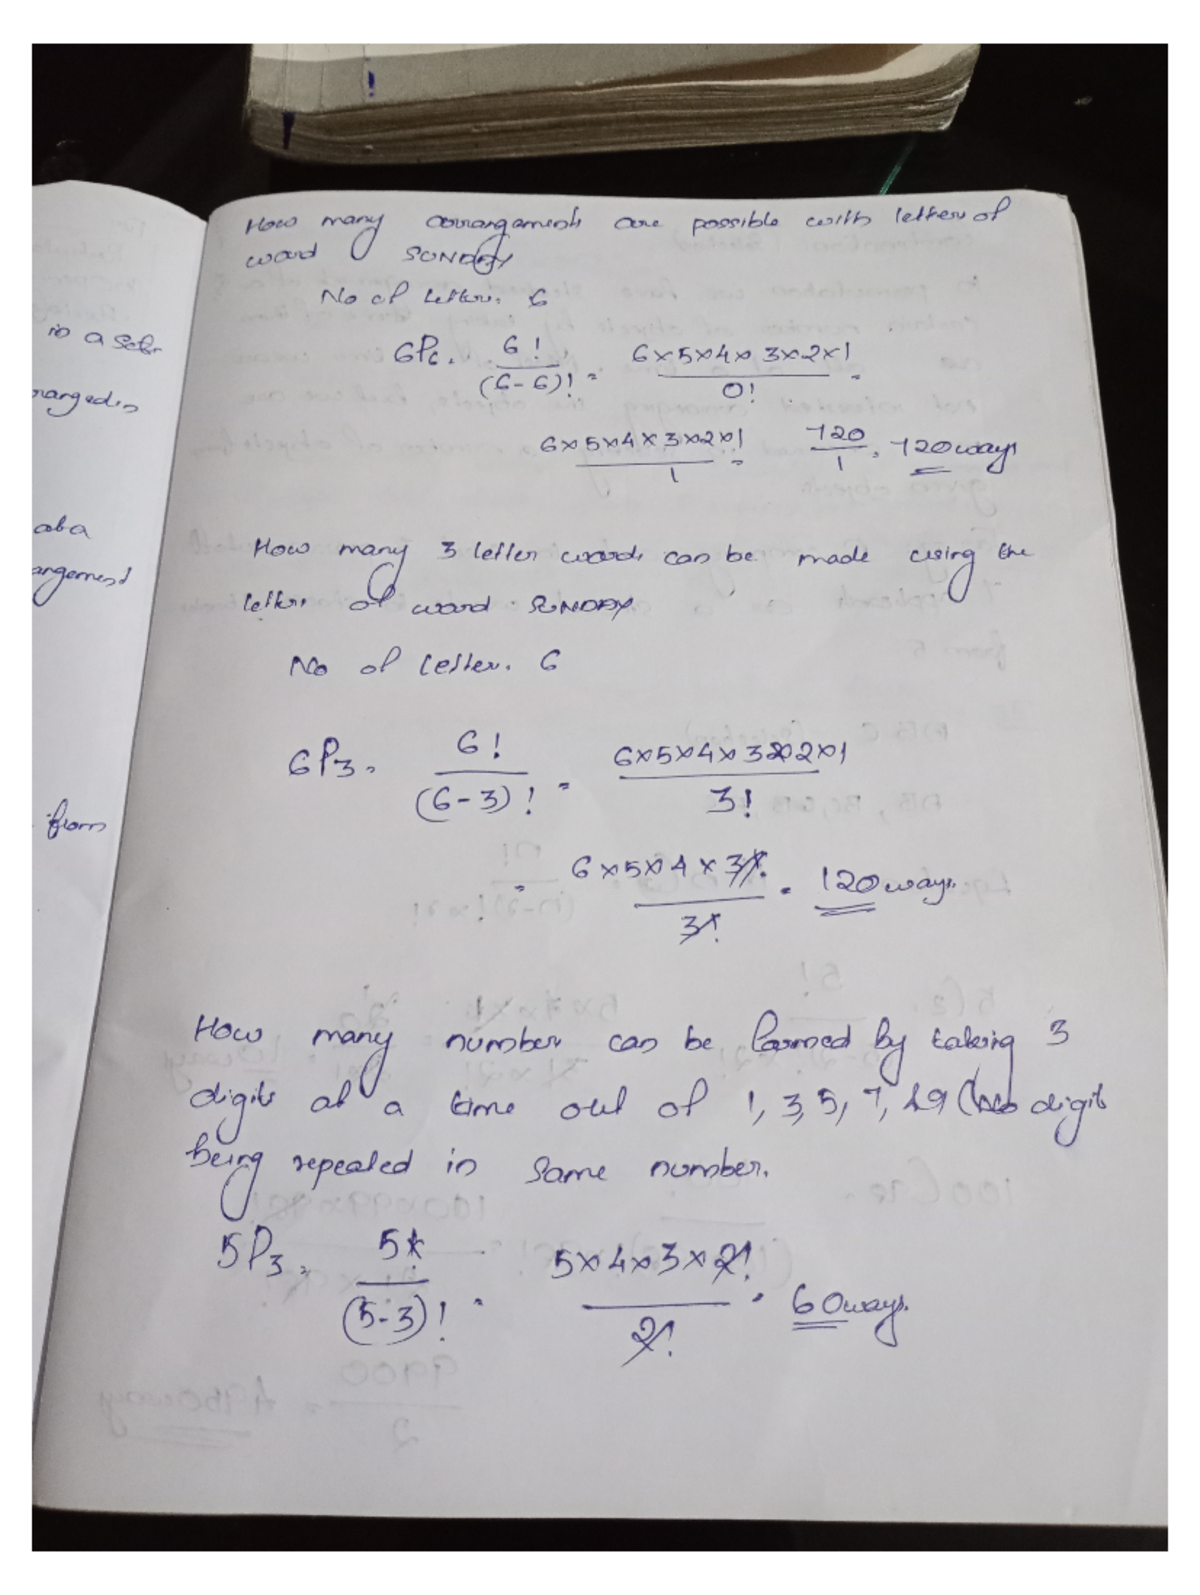 How many arrangaments are possible with letters of
word SUNDAY
No of letters. 6
6P6. 6! / (6-6)! = 6×5×4×3×2×1 / 0! =
6×5×4×3×2×1 / 1 = 720 / 1 = 720 ways
How many 3 letter words can be made using the
letters of word SUNDAY
No of letters. 6
6P3 = 6! / (6-3)! = 6×5×4×3×2×1 / 3!
= 6×5×4×3! / 3! = 120 ways.
How many number can be formed by taking 3
digits at a time out of 1, 3, 5, 7, & 9 (No digits
being repealed in same number.
5P3 = 5! / (5-3)! = 5×4×3×2! / 2! = 60 ways.
in a
ranged in
at a
angement
from